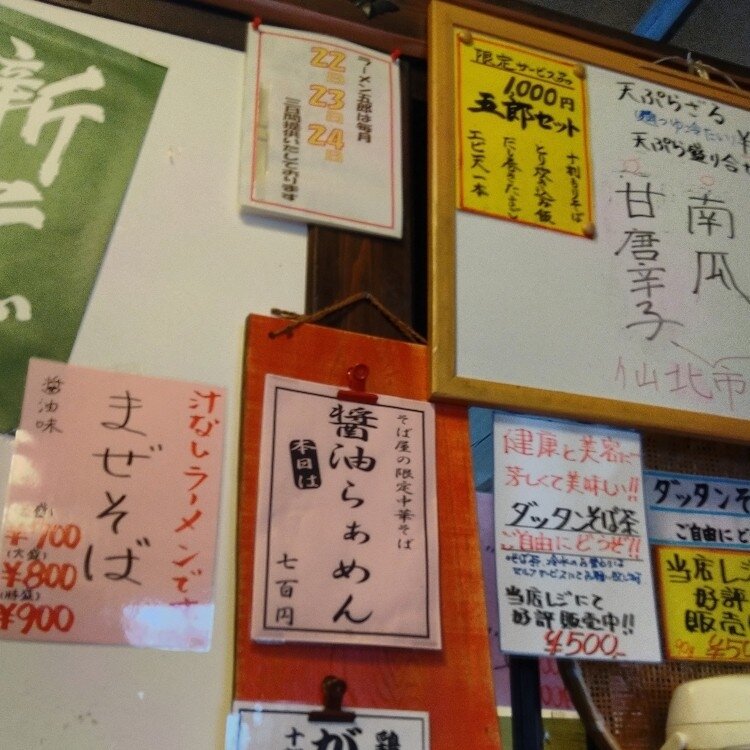 新
ラーメン五郎は毎月
22日
23日
24日
三日間提供いたしております
限定サービス品
1,000円
五郎セット
十割もりそば
とり炊き込み飯
だし巻きたまご
エビ天一本
天ぷらざる
天ぷら盛り合
南瓜
甘唐辛子
仙北市
汁なしラーメンです
まぜそば
醤油味
¥700
(大盛)
¥800
(特盛)
¥900
そば屋の限定中華そば
醤油らぁめん
本日は
七百円
健康と美容に
芳しくて美味しい!!
ダッタンそば茶
ご自由にどうぞ!!
当店レジにて
好評販売中!!
¥500-
ダッタンそ
ご自由にど
当店レジ
好評
販売
90g
鶏
が
十